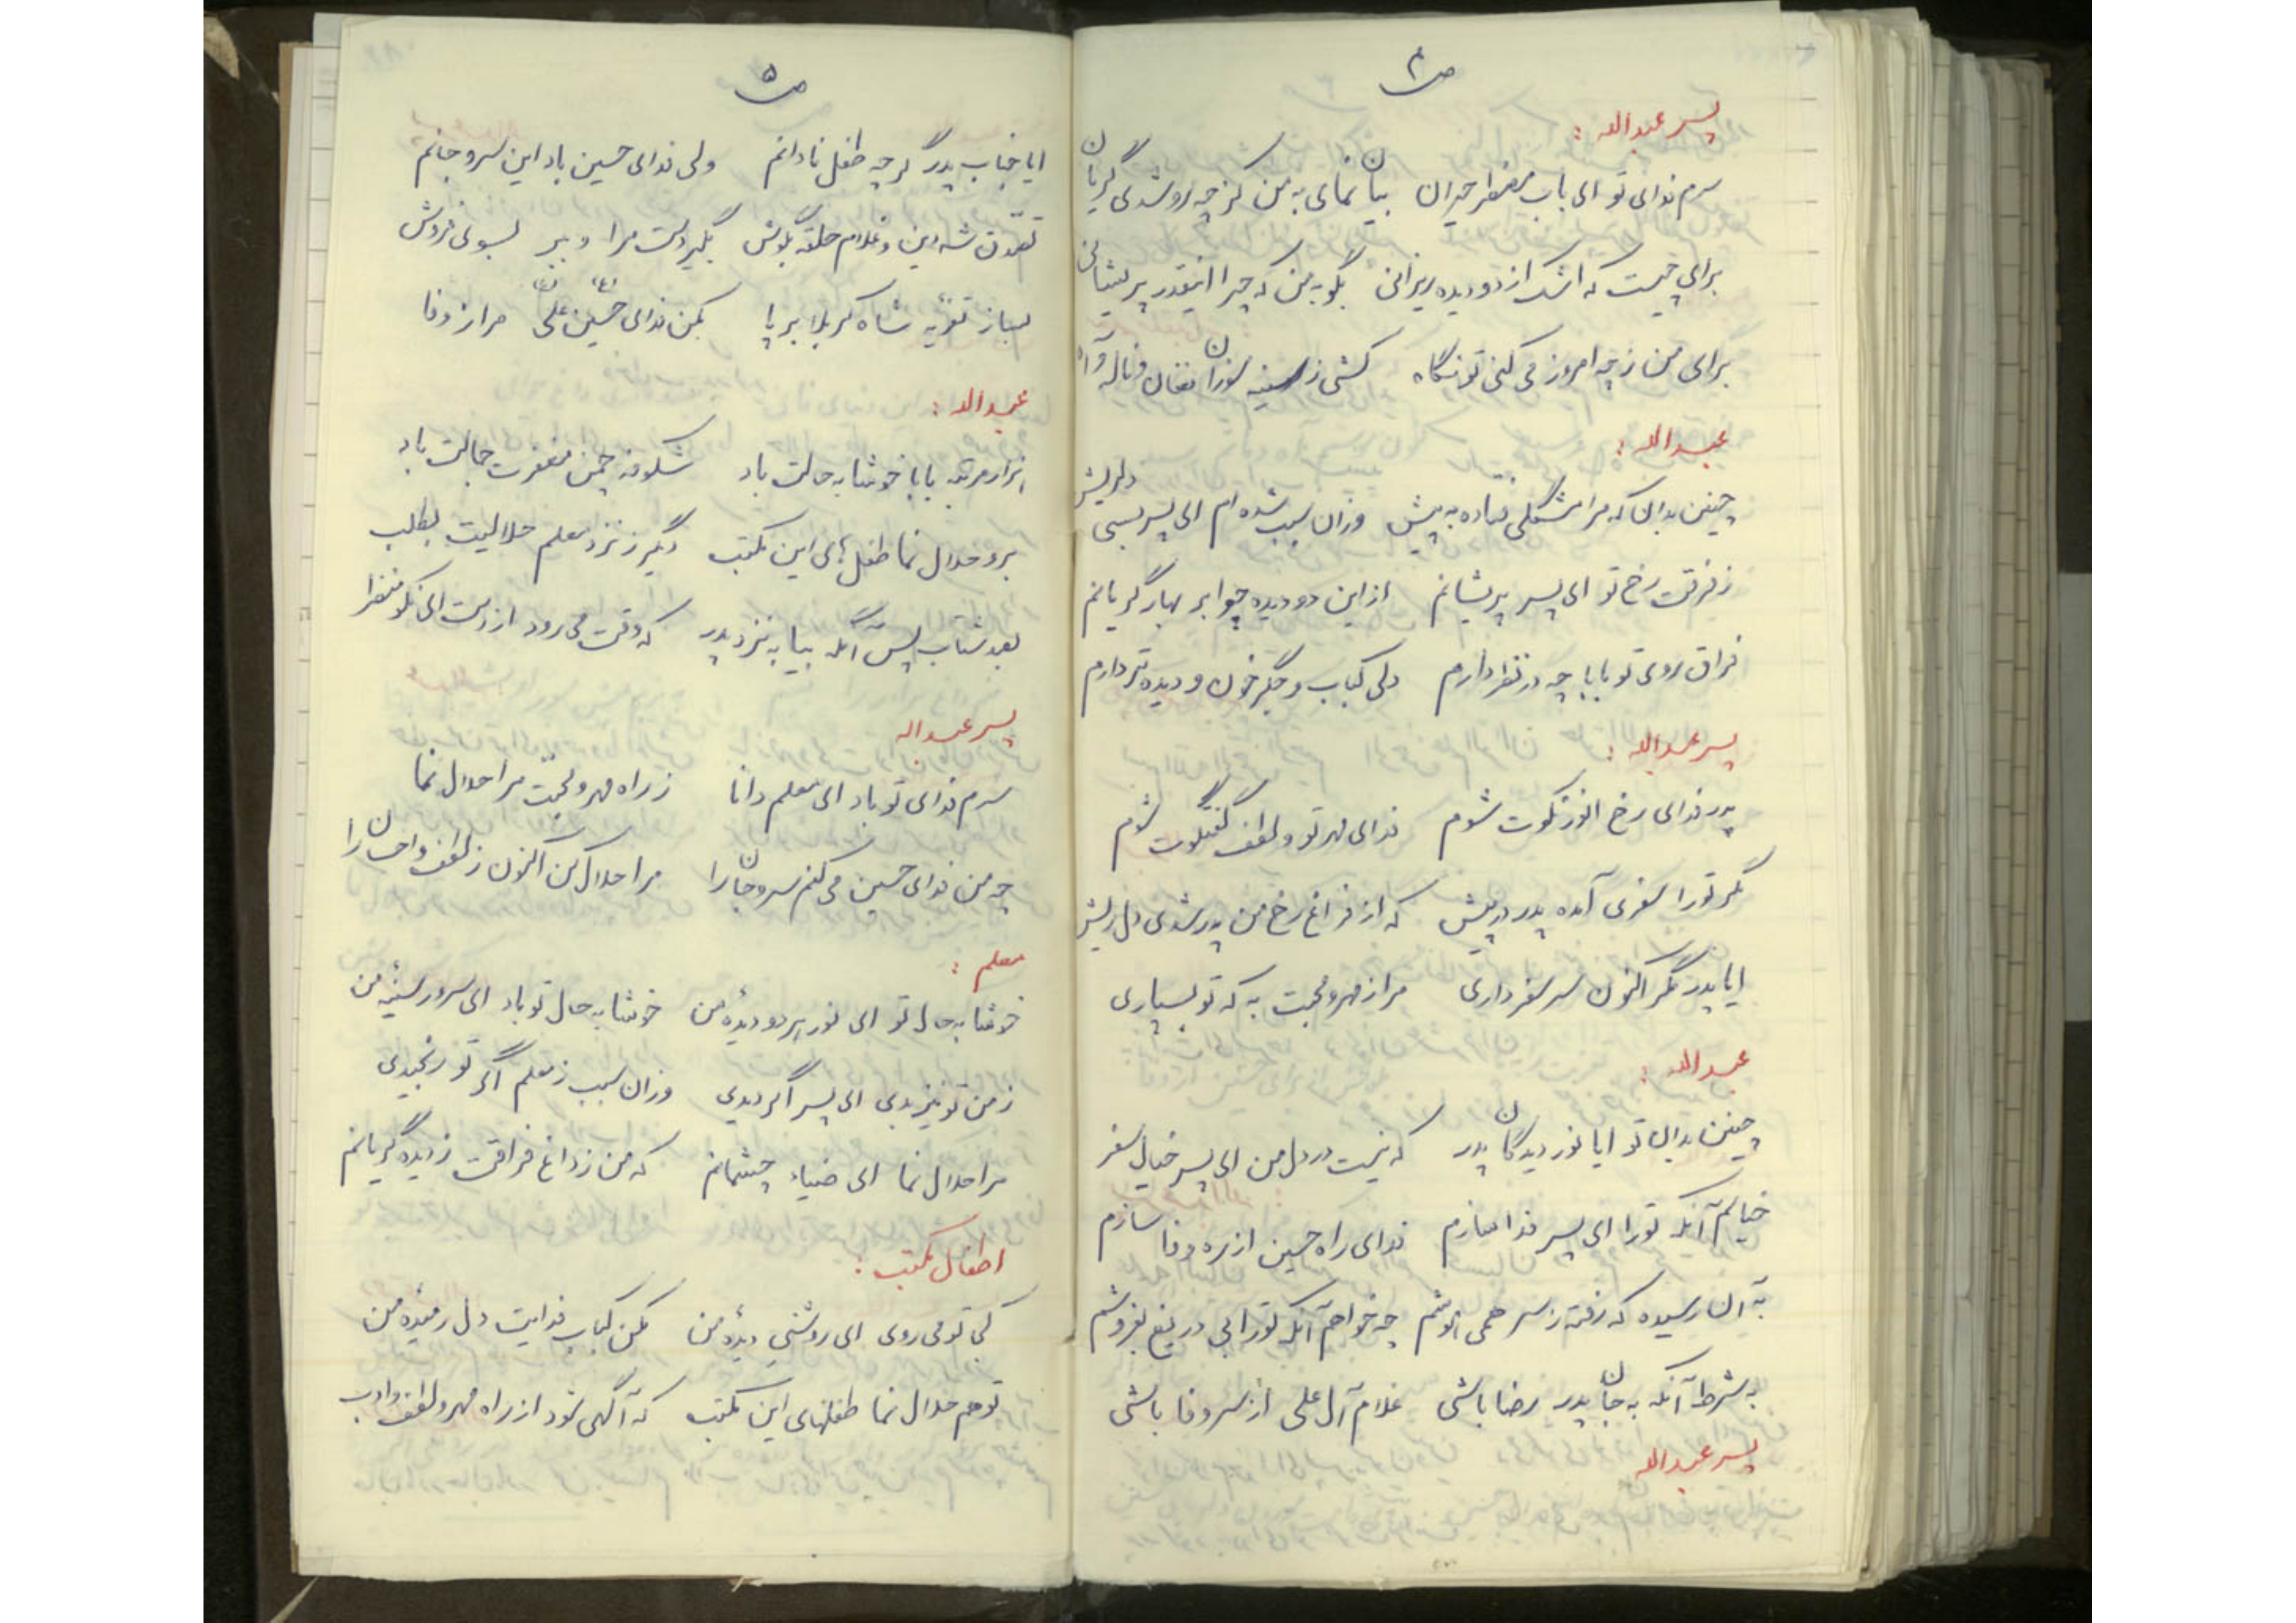 ص ۴
پسر عبدالله :
سرم فدای تو ای باب مضطر حیران بیان نمای به من کز چه رو شدی گریان
برای چیست که اشک از دو دیده ریزانی بگو به من که چرا اینقدر پریشانی
برای من ز چه امروز می کنی تو نگاه کشی ز سینه سوزان فغان و ناله و آه
عبدالله :
چنین بدان که مرا مشگلی فتاده به پیش وزان سبب شده ام ای پسر بسی دلریش
ز فرقت رخ تو ای پسر پریشانم از این دو دیده چو ابر بهار گریانم
فراق روی تو بابا چه در نظر دارم دلی کباب و جگر خون و دیده تر دارم
پسر عبدالله :
پدر فدای رخ انور نکوت شوم فدای مهر تو و لطف گفتگوت شوم
مگر تو را سفری آمده پدر در پیش که از فراغ رخ من پدر شدی دل ریش
ایا پدر مگر اکنون سر سفر داری مرا ز مهر و محبت به که تو بسپاری
عبدالله :
چنین بدان تو ایا نور دیدگان پدر که نیست در دل من ای پسر خیال سفر
خیالم آنکه تو را ای پسر فدا سازم فدای راه حسین از ره وفا سازم
به آن رسیده که رفته ز سر همی هوشم چه خواهم آنکه تو را بی دریغ بفروشم
به شرط آنکه به جان پدر رضا باشی غلام آل علی از سر وفا باشی
پسر عبدالله
ص ۵
ایا جناب پدر گرچه طفل نادانم ولی فدای حسین باد این سر و جانم
تصدق شه دین و غلام حلقه بگوش بگیر دست مرا و ببر بسوی فروش
بساز تعزیه شاه کربلا بر پا بکن فدای حسین علی مرا ز وفا
عبدالله :
هزار مرتبه بابا خوشا به حالت باد شکوفه چمن مغفرت جمالت باد
برو حلال نما طفل های این مکتب دگر ز نزد معلم حلالیت بطلب
بعد شتاب پس آنگه بیا به نزد پدر که وقت می رود از دست ای نکو منظر
پسر عبدالله
سرم فدای تو باد ای معلم دانا ز راه مهر و محبت مرا حلال نما
چه من فدای حسین می کنم سر و جان را مرا حلال کن اکنون ز لطف و احسان را
معلم :
خوشا به حال تو ای نور هر دو دیدهٔ من خوشا به حال تو باد ای سرور سینهٔ من
ز من تو نیز بدی ای پسر اگر دیدی وزان سبب ز معلم اگر تو رنجیدی
مرا حلال نما ای ضیاء چشمانم که من ز داغ فراقت ز دیده گریانم
اطفال مکتب :
کجا تو می روی ای روشنی دیدهٔ من مکن کباب فدایت دل رمیدهٔ من
تو هم حلال نما طفلهای این مکتب که آگهی تو از راه مهر و لطف و ادب